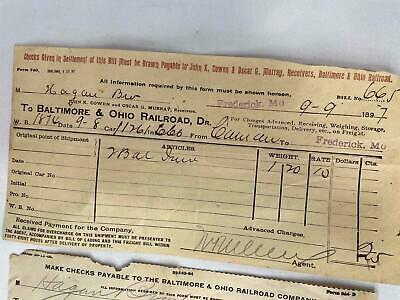 Checks Given in Settlement of this Bill Must be Drawn Payable to John K. Cowen & Oscar G. Murray, Receivers, Baltimore & Ohio Railroad.
Form 340.
All information required by this form must be shown hereon.
BILL No. 665
M Hagan Bro
JOHN K. COWEN and OSCAR G. MURRAY, Receivers,
Frederick, Md 9-9 1897
TO BALTIMORE & OHIO RAILROAD, DR.
For Charges Advanced, Receiving, Weighing, Storage, Transportation, Delivery, etc., on Freight.
W. B. 1876 9-8 Car 1126 From To Frederick, Md
Original point of Shipment
ARTICLES
WEIGHT
RATE
Dollars
Cts.
Initial
2 Bdl
1 20 10
Original Car No.
Initial
Pro. No.
Received Payment for the Company.
Advanced Charges.
ALL CLAIMS FOR OVERCHARGE ON THIS SHIPMENT MUST BE PRESENTED TO
AGENT, ACCOMPANIED BY BILL OF LADING AND THIS FREIGHT BILL WITHIN
FORTY-EIGHT HOURS AFTER DELIVERY OF PROPERTY.
Agent.
MAKE CHECKS PAYABLE TO THE BALTIMORE & OHIO RAILROAD COMPANY